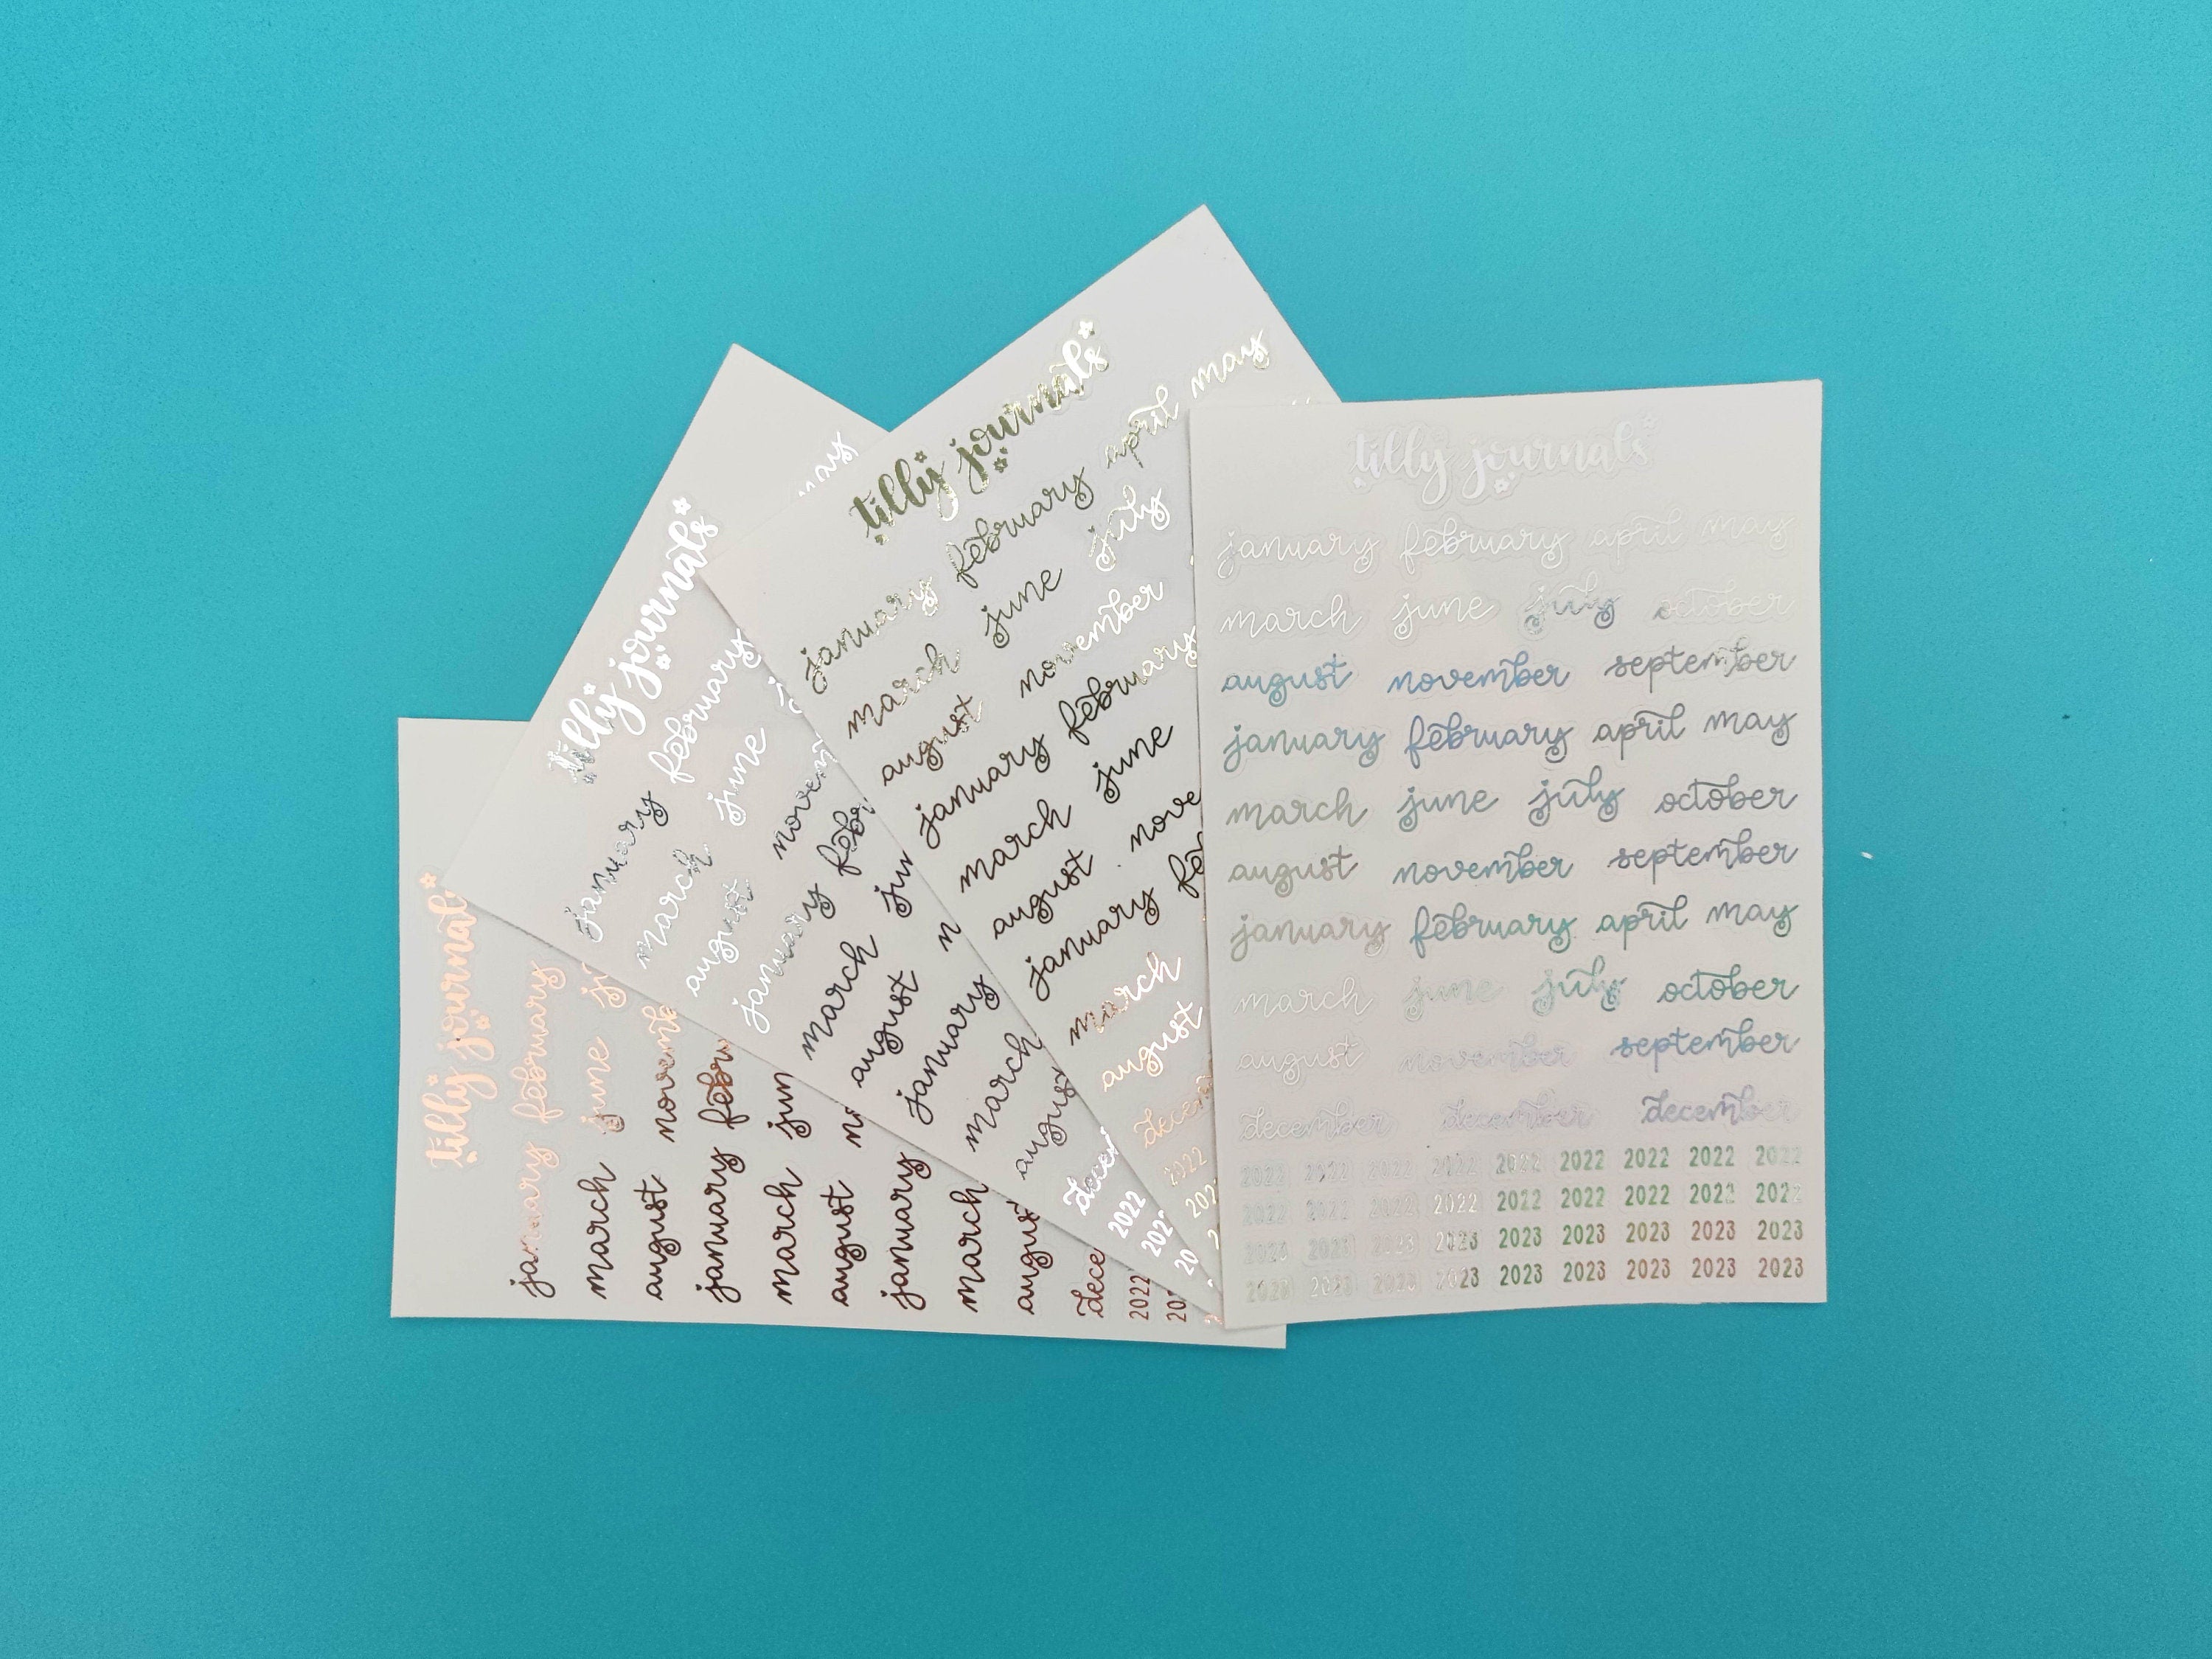 tilly journals
january february
march june
august
january
march jun
august
january
march
august
2022
tilly journals
january february
march june
august
january
march jun
august
january
march
august
2022
tilly journals
january february april may
march june july
august november
january february
march june
august
january
march
august
2022
tilly journals
january february april may
march june july october
august november september
january february april may
march june july october
august november september
january february april may
march june july october
august november september
december december december
2022 2022 2022 2022 2022 2022 2022 2022 2022
2022 2022 2022 2022 2022 2022 2022 2022 2022
2023 2023 2023 2023 2023 2023 2023 2023 2023
2023 2023 2023 2023 2023 2023 2023 2023 2023